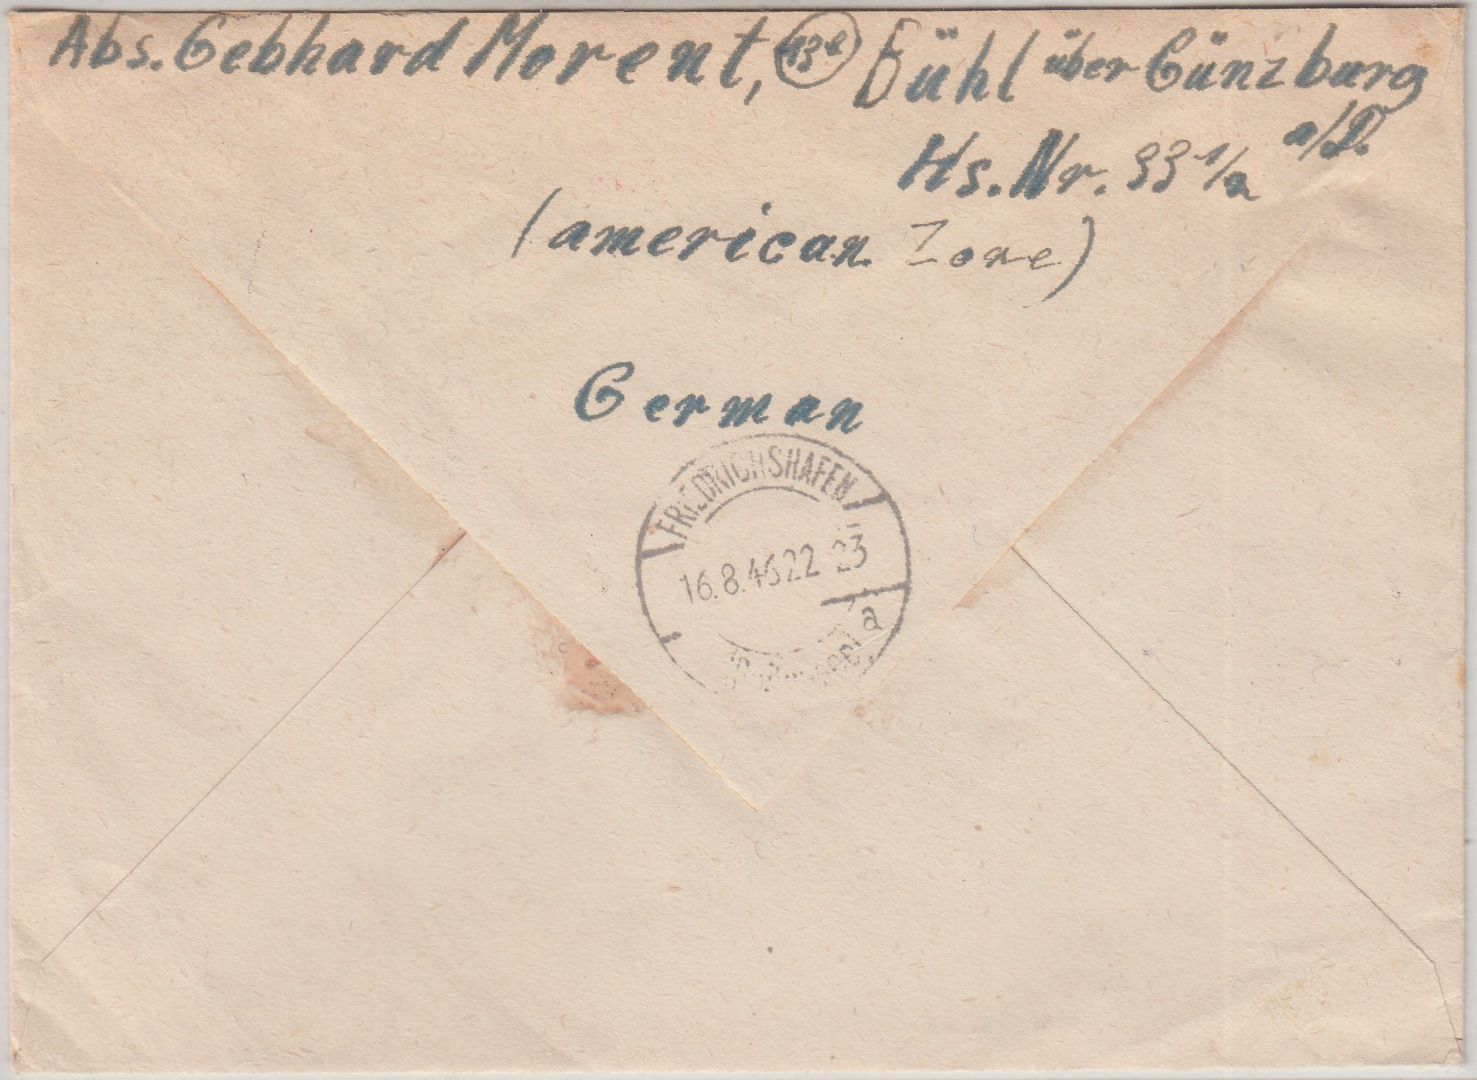 Abs. Gebhard Morent, 13 Bühl über Günzburg
a/D.
Hs. Nr. 33 1/2
(american Zone)
German
FRIEDRICHSHAFEN
16.8.46 22-23
a